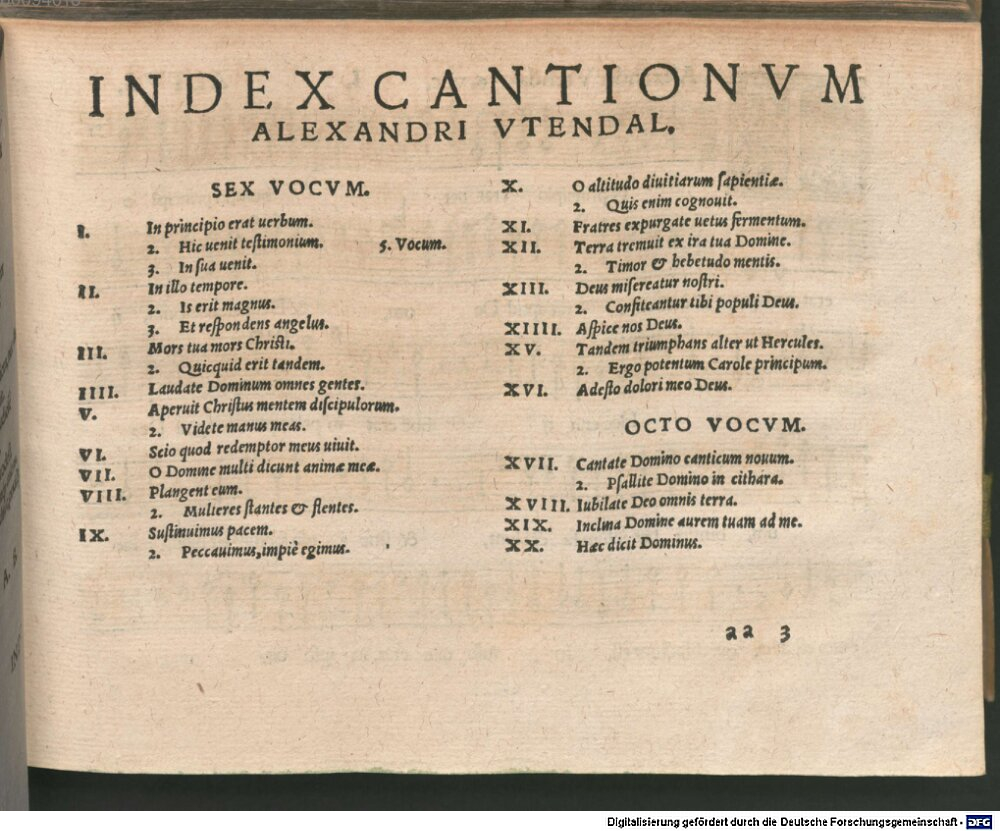 INDEX CANTIONVM
ALEXANDRI VTENDAL.
SEX VOCVM.
I. In principio erat uerbum.
2. Hic uenit testimonium. 5. Vocum.
3. In sua uenit.
II. In illo tempore.
2. Is erit magnus.
3. Et respondens angelus.
III. Mors tua mors Christi.
2. Quicquid erit tandem.
IIII. Laudate Dominum omnes gentes.
V. Aperuit Christus mentem discipulorum.
2. Videte manus meas.
VI. Scio quod redemptor meus uiuit.
VII. O Domine multi dicunt animæ meæ.
VIII. Plangent eum.
2. Mulieres stantes & flentes.
IX. Sustinuimus pacem.
2. Peccauimus, impiè egimus.
X. O altitudo diuitiarum sapientiæ.
2. Quis enim cognouit.
XI. Fratres expurgate uetus fermentum.
XII. Terra tremuit ex ira tua Domine.
2. Timor & hebetudo mentis.
XIII. Deus misereatur nostri.
2. Confiteantur tibi populi Deus.
XIIII. Aspice nos Deus.
XV. Tandem triumphans alter ut Hercules.
2. Ergo potentum Carole principum.
XVI. Adesto dolori meo Deus.
OCTO VOCVM.
XVII. Cantate Domino canticum nouum.
2. Psallite Domino in cithara.
XVIII. Iubilate Deo omnis terra.
XIX. Inclina Domine aurem tuam ad me.
XX. Hæc dicit Dominus.
aa 3
Digitalisierung gefördert durch die Deutsche Forschungsgemeinschaft - DFG